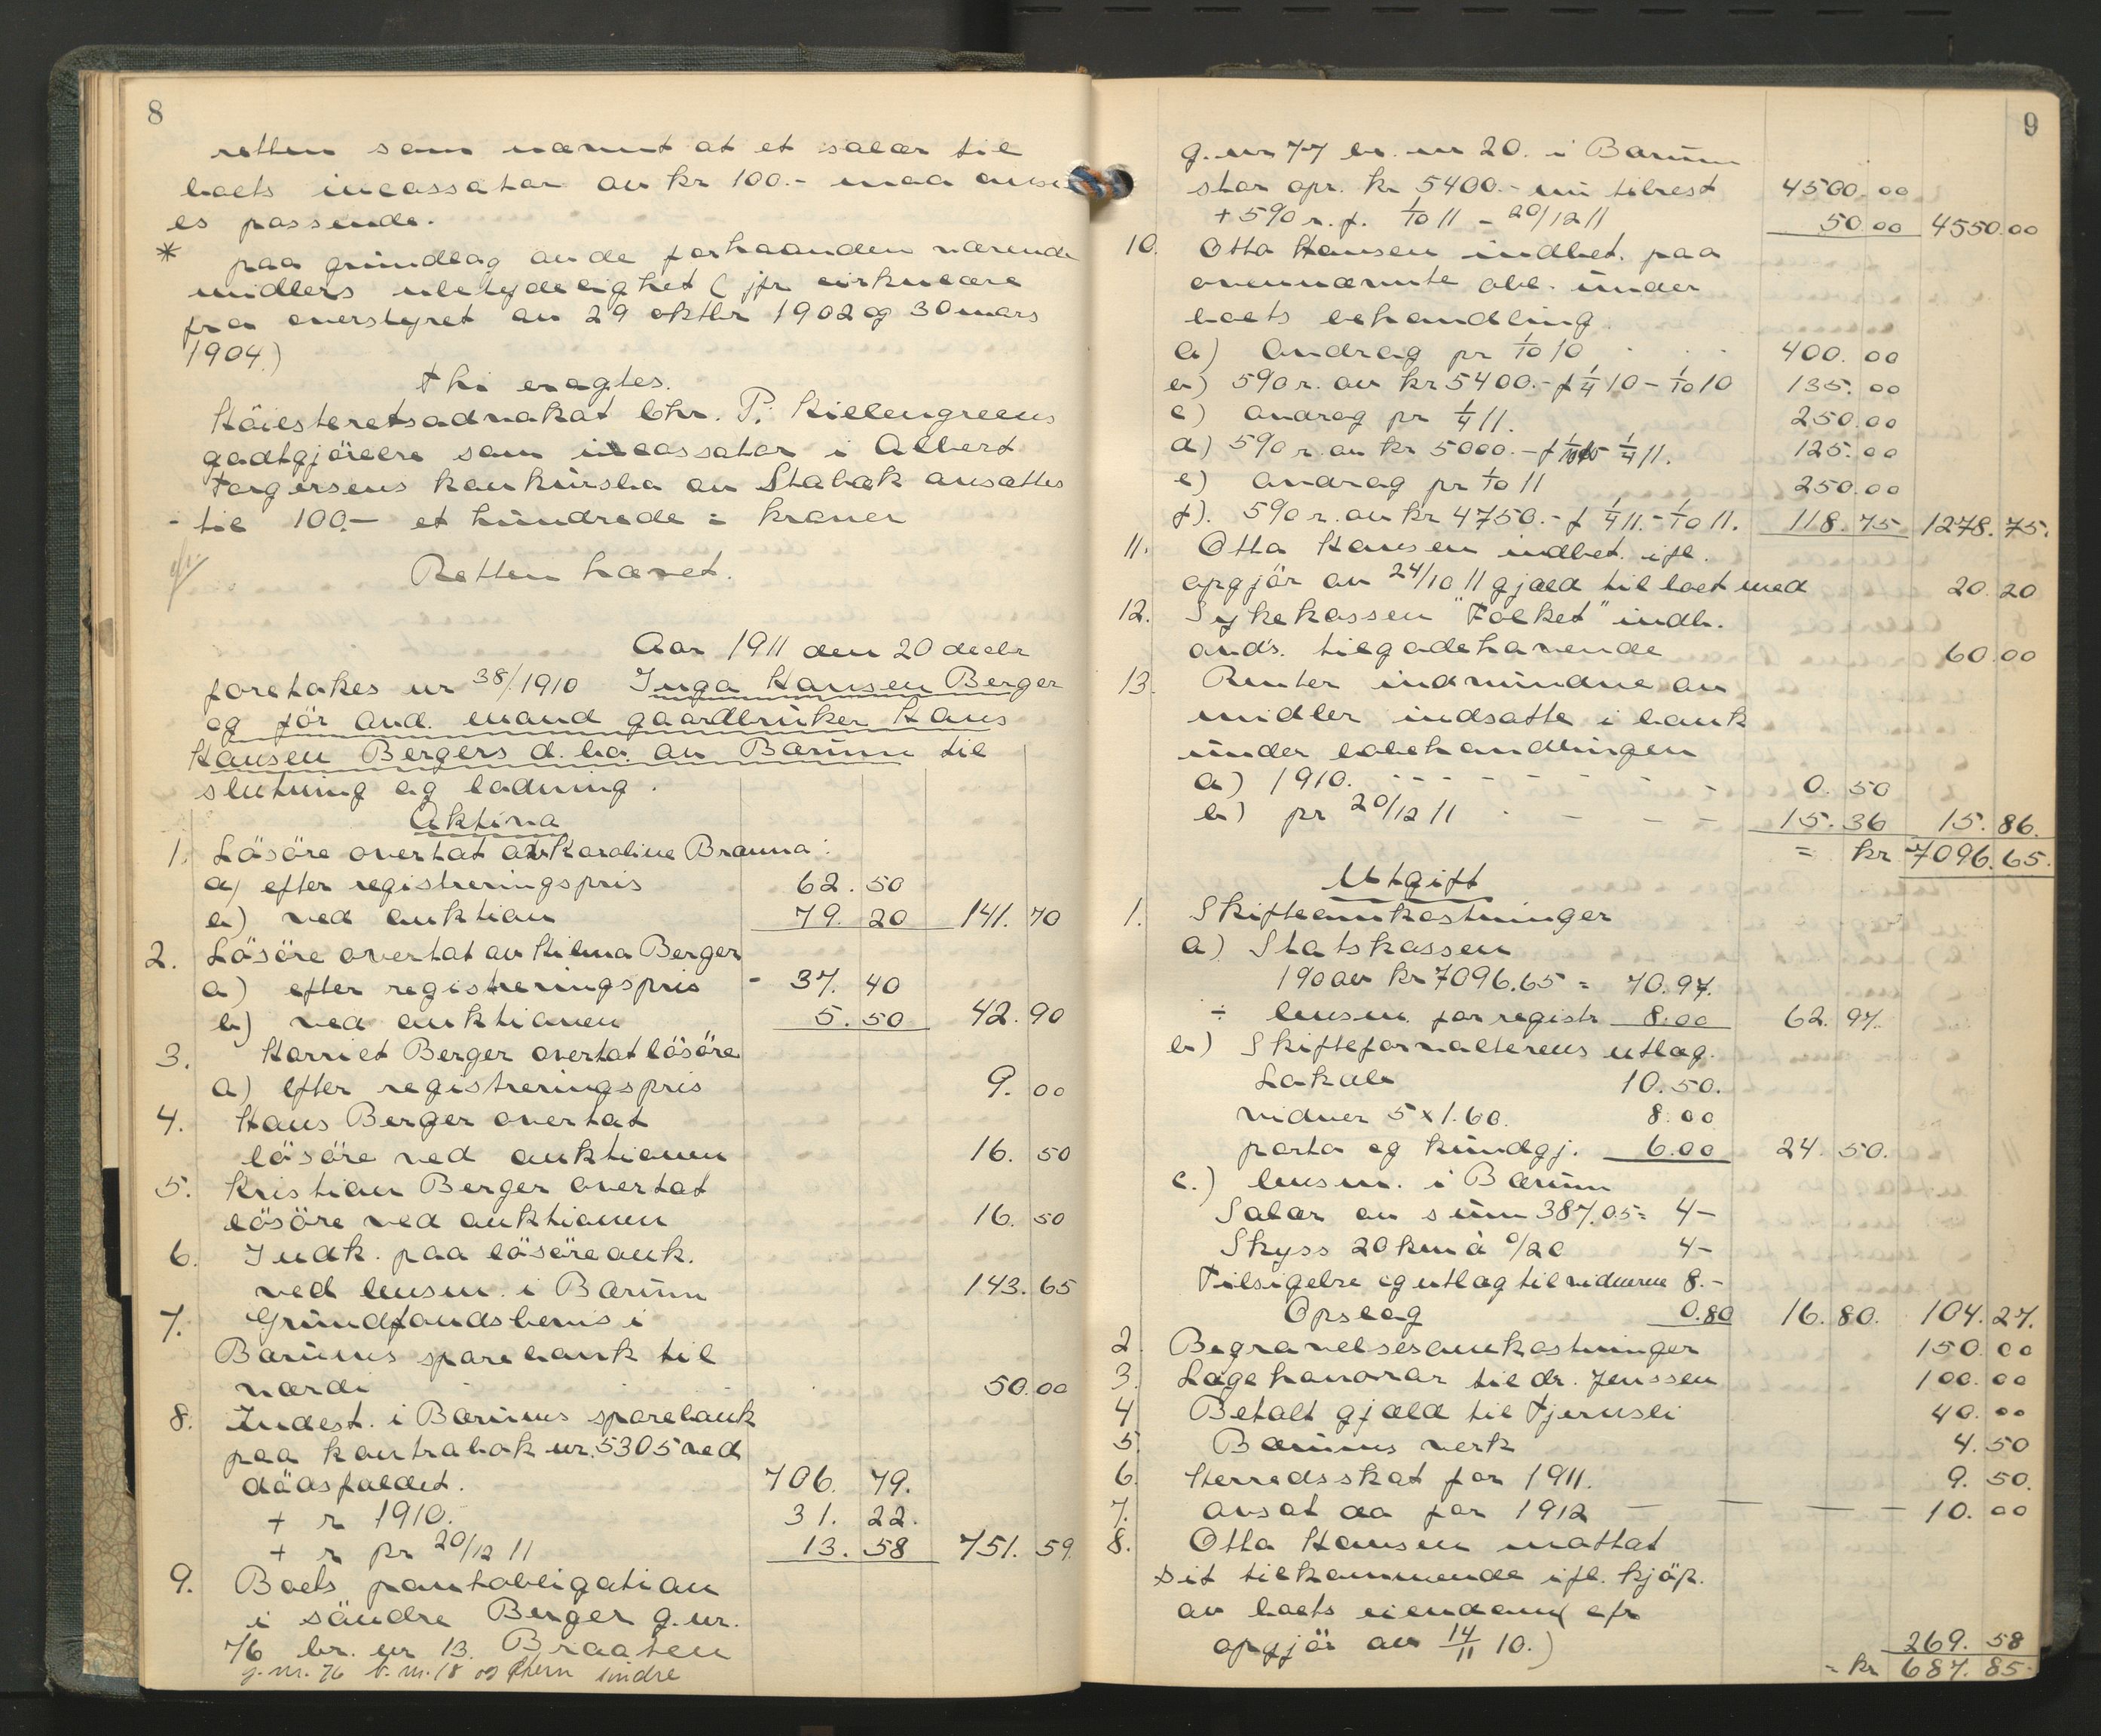 8
retten som nævnt at et salær til
boets incassator av kr 100.- maa anse
es passende.
* paa grundlag av de forhaanden værende
midlers ubetydelighet (jfr cirkulære
fra overstyret av 29 oktbr 1902 og 30 mars
1904)
thi eragtes.
Höiesteretsadvokat Chr. P. Killengreens
godtgjörelse som incassator i Albert
Torgersens konkursbo av Stabæk ansættes
til 100.- et hundrede = kroner
Retten hævet.
Aar 1911 den 20 decbr
foretokes nr 38/1910 Inga Hansen Berger
og før avd. mand gaardbruker Hans
Hansen Bergers d. bo. av Bærum til
slutning og lodning.
Aktiva
1. Lösöre overtat av Karoline Branna:
a) efter registreringspris 62.50
b) ved auktion 79.20 141.70
2. Lösöre overtat av Hilma Berger
a) efter registreringspris - 37.40
b) ved auktionen 5.50 42.90
3. Harriet Berger overtat lösöre
a) efter registreringspris 9.00
4. Hans Berger overtat
lösöre ved auktionen 16.50
5. Kristian Berger overtat
lösöre ved auktionen 16.50
6. Indk. paa lösöreauk.
ved lensm. i Bærum 143.65
7. Grundfondsbevis i
Bærums sparebank til
værdi 50.00
8. Indest. i Bærums sparebank
paa kontrabok nr. 5305 ved
dödsfaldet. 706.79.
+ r 1910. 31.22.
+ r pr 20/12 11 13.58 751.59.
9. Boets pantobligation
i söndre Berger g.nr.
76 br. nr 13. Braaten
g.nr. 76 b.nr. 18 og indre
9
g.nr 77 br. nr 20. i Bærum
stor opr. kr 5400.- nu tilrest 4500.00
+ 5% r. f. 1/10 11 - 20/12 11 50.00 4550.00
10. Otto Hansen indbet. paa
ovennævnte obl. under
boets behandling.
a) avdrag pr 1/10 10 400.00
b) 5% r. av kr 5400.- f 1/4 10 - 1/10 10 135.00
c) avdrag pr 1/4 11. 250.00
d) 5% r. av kr 5000.- f 1/10 10 1/4 11. 125.00
e) avdrag pr 1/10 11 250.00
f). 5% r. av kr 4750.- f 1/4 11. - 1/10 11. 118.75 1278.75.
11. Otto Hansen indbet. ifl.
opgjör av 24/10 11 gjæld til boet med 20.20
12. Sykekassen "Folket" indb.
avd's. tilgodehavende 60.00
13. Renter indvundne av
midler indsatte i bank
under bobehandlingen
a) 1910. - - - - - - - 0.50
b) pr 20/12 11 - - - - 15.36 15.86.
= kr 7096.65.
Utgift
1. Skifteomkostninger
a) Statskassen
1% av kr 7096.65 = 70.97.
÷ lensm. for registr 8.00 62.97.
b) Skifteforvalterens utlæg.
Lokale 10.50.
vidner 5 x 1.60. 8.00
porto og kundgj. 6.00 24.50.
c.) lensm. i Bærum
Salær av sum 387.05 = 4-
Skyss 20 km à 0/20 4-
Tilsigelse og utlæg til vidnerne 8.-
Opslag 0.80 16.80. 104.27.
2. Begravelsesomkostninger 150.00
3. Lægehonorar til dr. Jenssen 100.00
4 Betalt gjæld til Fjernsli 40.00
5. Bærums verk 4.50
6. Herredsskat for 1911. 9.50.
7. avsat do for 1912 - - - - 10.00
8. Otto Hansen mottat
sit tilkommende ifl. kjöp.
av boets eiendom (cfr
opgjör av 14/11 10.) 269.58
= kr 687.85.